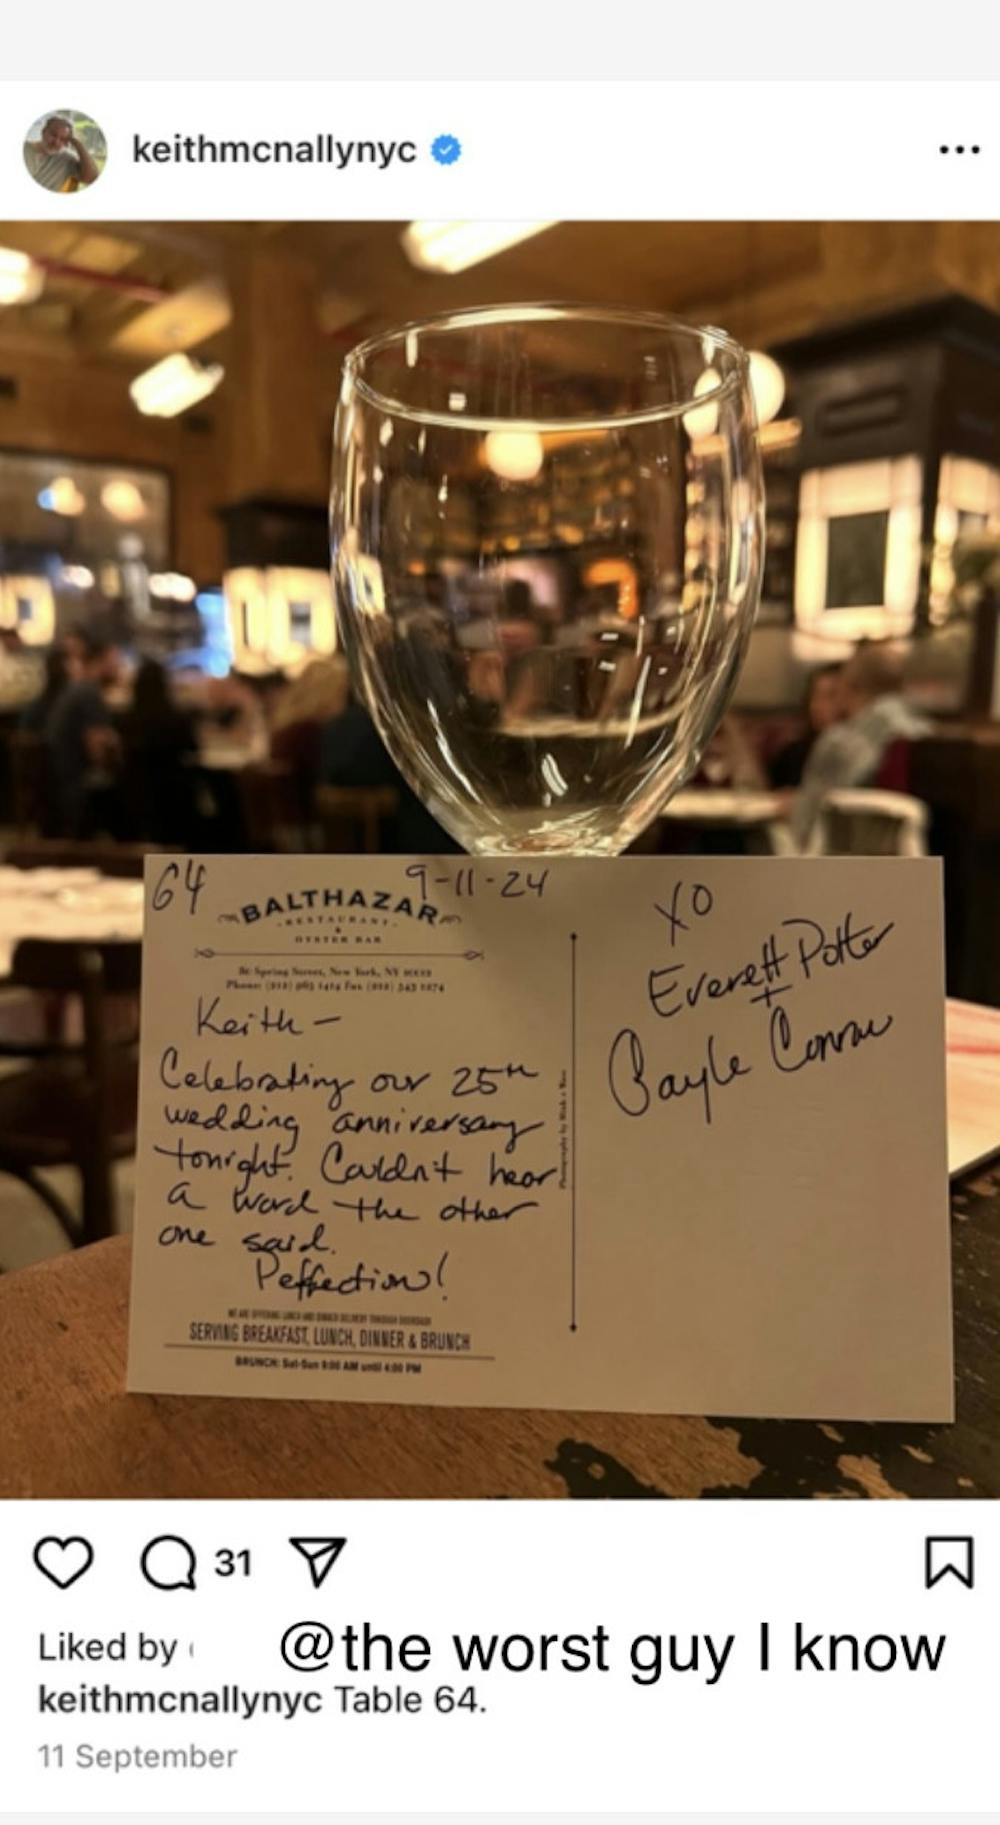 keithmcnallynyc
64
9-11-24
BALTHAZAR
RESTAURANT
&
OYSTER BAR
80 Spring Street, New York, NY 10012
Keith –
Celebrating our 25th
wedding anniversary
tonight. Couldn't hear
a word the other
one said.
Peffection!
SERVING BREAKFAST, LUNCH, DINNER & BRUNCH
BRUNCH: Sat-Sun 9:00 AM until 4:00 PM
XO
Everett Potter
+
Gayle Conran
31
Liked by
@the worst guy I know
keithmcnallynyc Table 64.
11 September